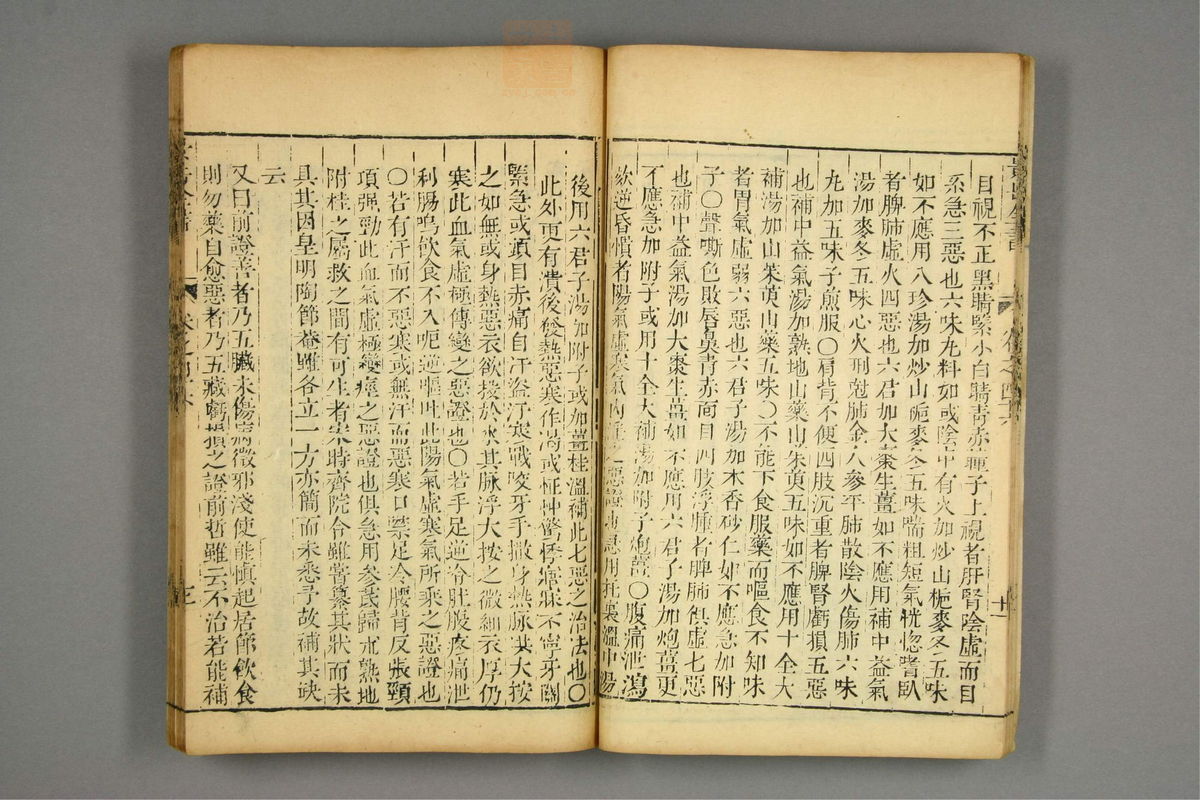 景岳全書
目視不正黑睛緊小白睛青赤瞳子上視者肝腎陰虛而目
系急三惡也六味丸料如或陰中有火加炒山梔麥冬五味
如不應用八珍湯加炒山梔麥冬五味喘粗短氣恍惚嗜臥
者脾肺虛火四惡也六君加大棗生薑如不應用補中益氣
湯加麥冬五味心火刑尅肺金人參平肺散陰火傷肺六味
丸加五味子煎服〇肩背不便四肢沉重者脾腎虧損五惡
也補中益氣湯加熟地山藥山茱萸五味如不應用十全大
補湯加山茱萸山藥五味〇不能下食服藥而嘔食不知味
者胃氣虛弱六惡也六君子湯加木香砂仁如不應急加附
子〇聲嘶色敗唇鼻青赤面目四肢浮腫者脾肺俱虛七惡
也補中益氣湯加大棗生薑如不應用六君子湯加炮薑更
不應急加附子或用十全大補湯加附子炮薑〇腹痛泄瀉
欬逆昏憒者陽氣虛寒氣內之惡證也急用托裏溫中湯
後用六君子湯加附子或加薑桂溫補此七惡之治法也〇
此外更有潰後發熱惡寒作渴或怔忡驚悸寤寐不寧牙關
緊急或頭目赤痛自汗盜汗寒戰咬牙手撒身熱脉洪大按
之如無或身熱惡衣欲投於水其脉浮大按之微細衣厚仍
寒此血氣虛極傳變之惡證也〇若手足逆冷肚腹疼痛泄
利腸鳴飲食不入呃逆嘔吐此陽氣虛寒氣所乘之惡證也
〇若有汗而不惡寒或無汗而惡寒口禁足冷腰背反張頸
項强勁此血氣虛極變痙之惡證也俱急用參芪歸朮熟地
附桂之屬救之間有可生者宋時齊院令雖嘗纂其狀而未
具其因皇明陶節菴雖各立一方亦簡而未悉予故補其缺
云
又曰前證善者乃五臟未傷病微邪淺使能慎起居節飲食
則勿藥自愈惡者乃五藏虧損之證前哲雖云不治若能補